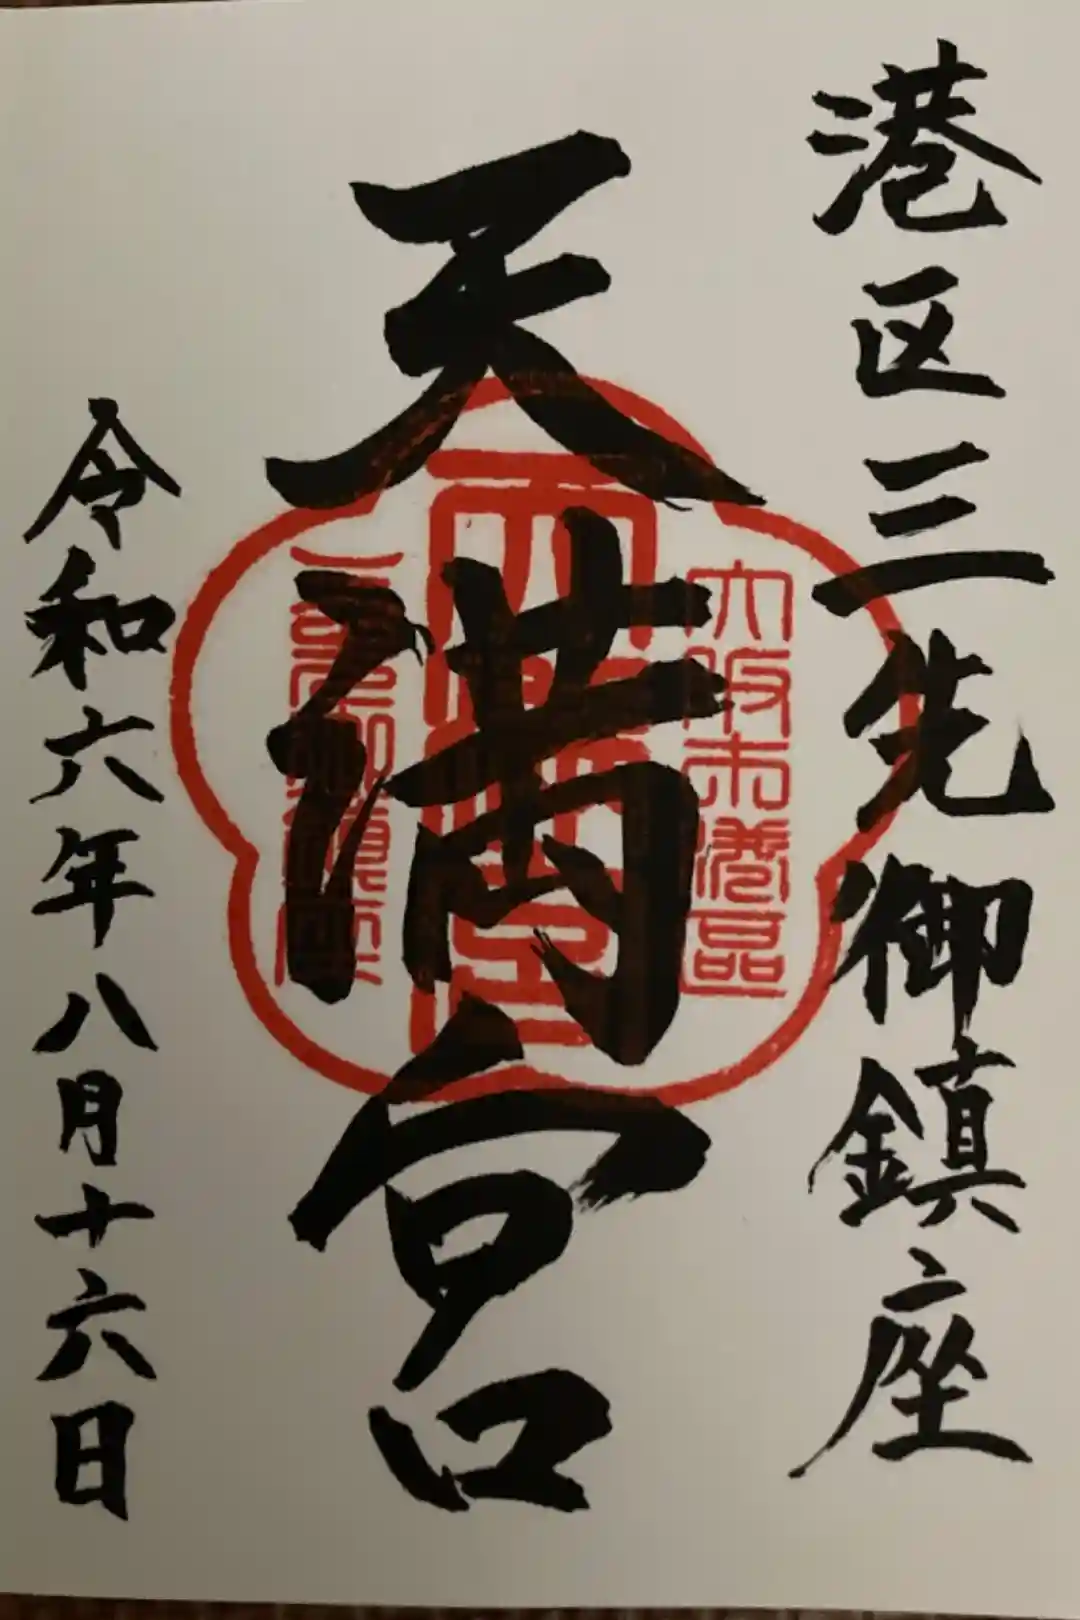 港区三先御鎮座
天満宮
大阪市港区
天満宮
三先御鎮座
令和六年八月十六日